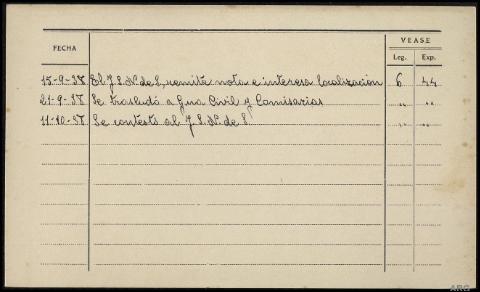 VEASE
FECHA Leg. Exp.
15-9-38 El J. S. Nº. de S, remite nota e interesa localización 6 44
21-9-38 Se trasladó a Gua Civil y Comisarías " "
11-10-38 Se contestó al J. S. Nº. de S. " "
ARG